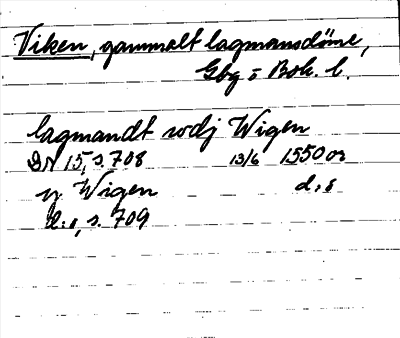 Viken, gammalt lagmansdöme,
Gbg o Boh. l.
lagmandt vdj Wigen
DN 15, s. 708 13/6 1550 or
y Wigen d:o
d:o, s. 709